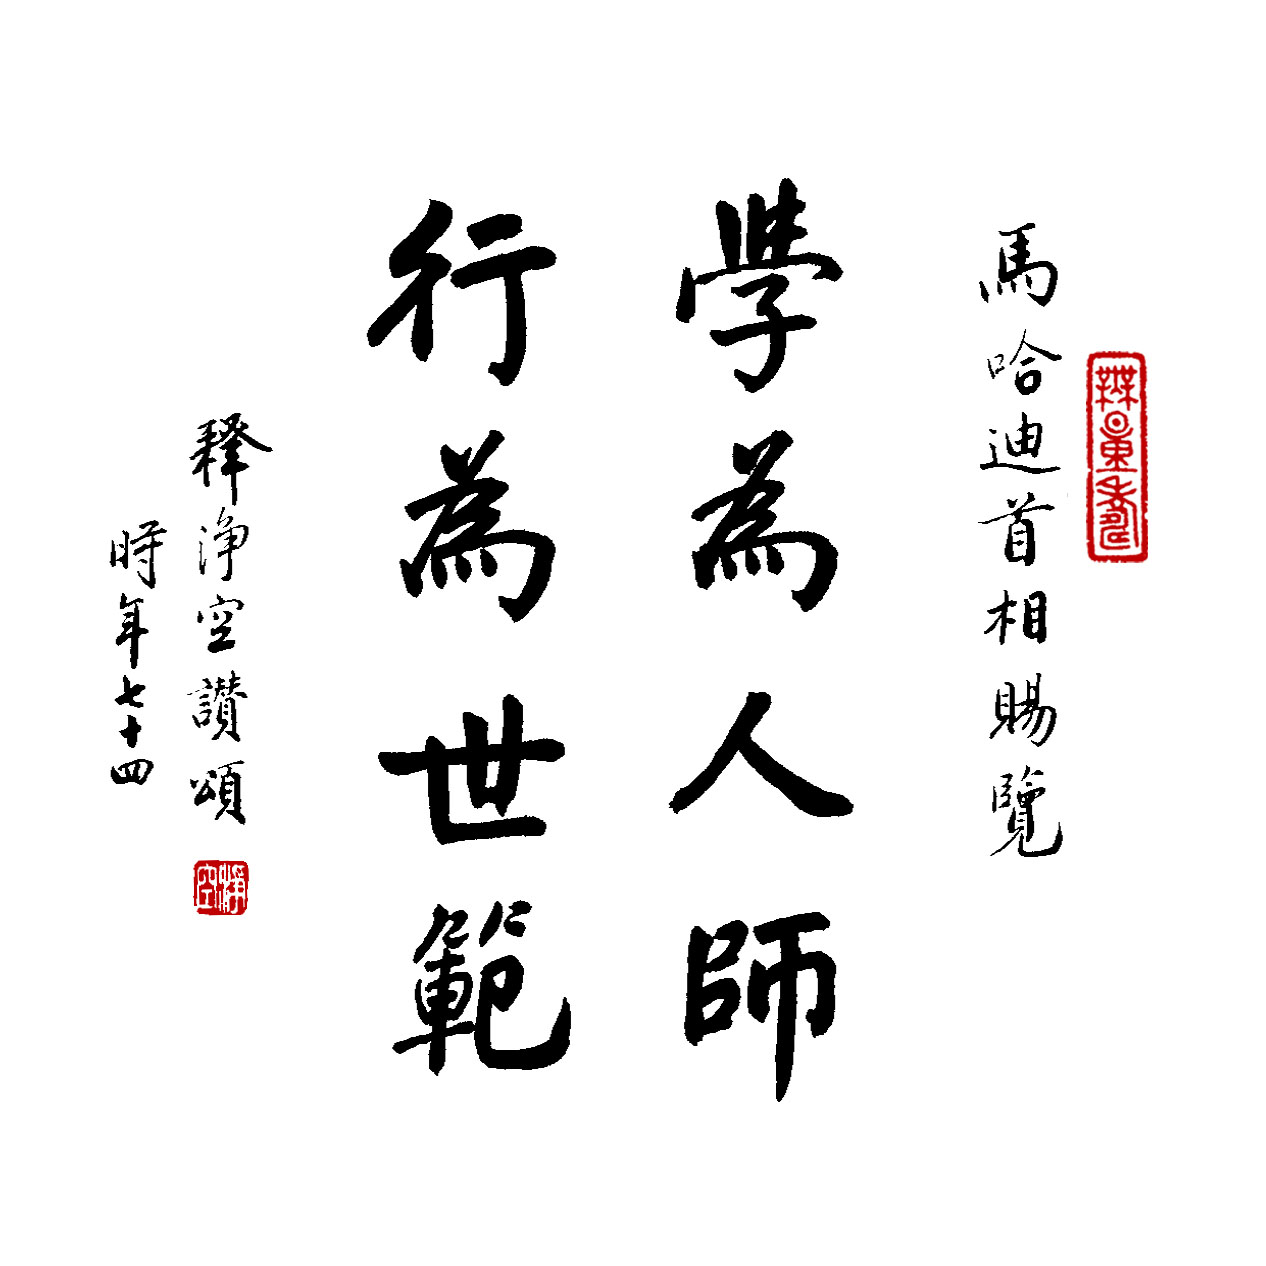 無量壽
馬哈迪首相賜覽
學為人師
行為世範
释淨空讚頌
時年七十四
淨空